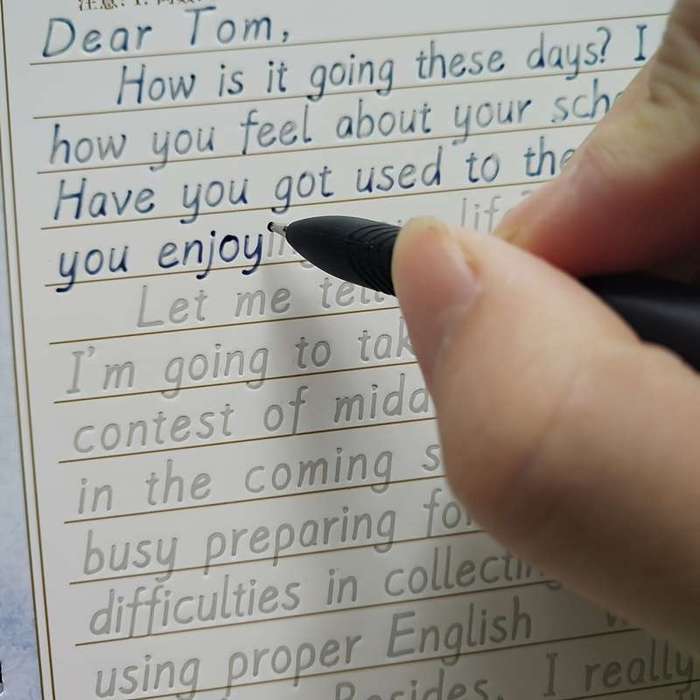 Dear Tom,
How is it going these days? I
how you feel about your
Have you got used to the
you enjoying
Let me tell
I'm going to
contest of
in the coming
busy preparing for
difficulties in
using proper English
Besides, I really